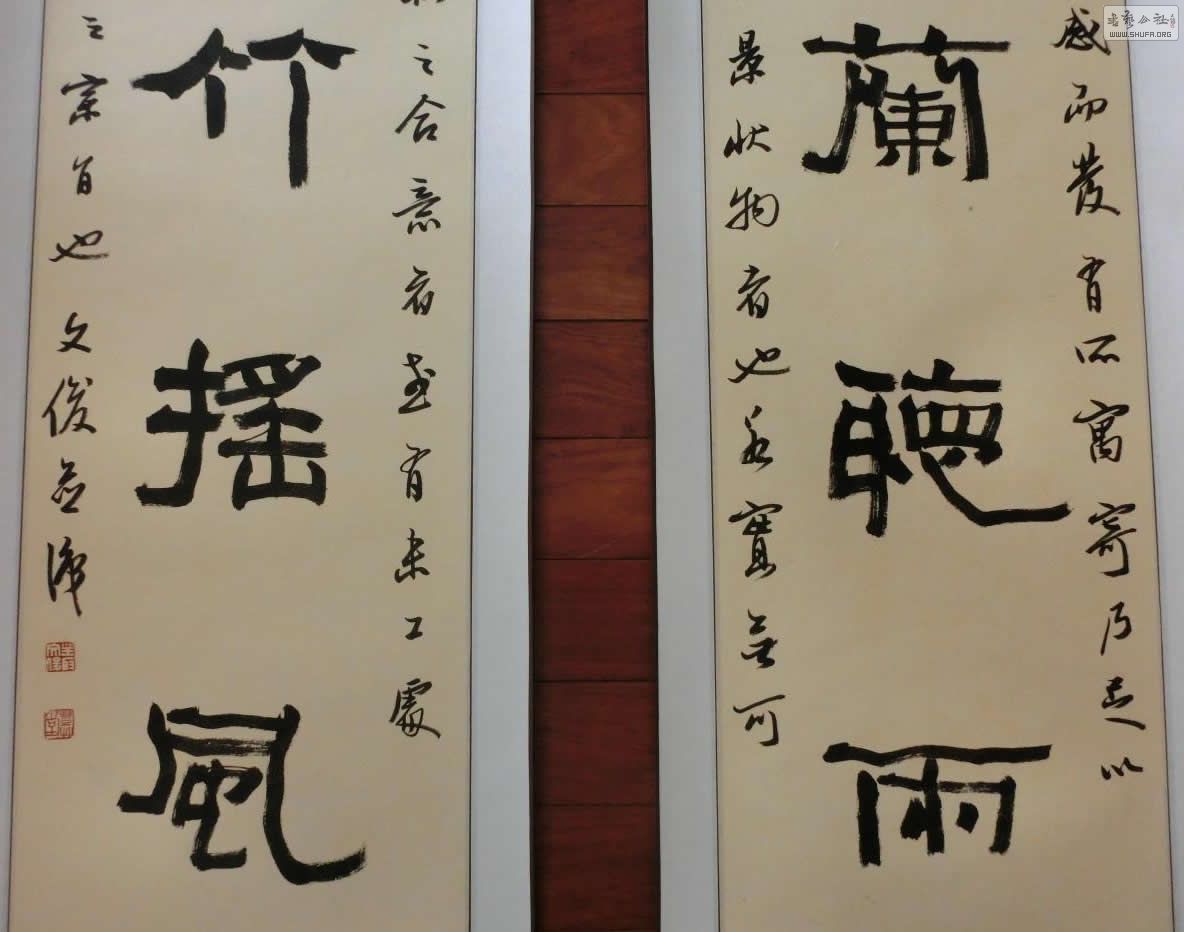 書藝公社
WWW.SHUFA.ORG
感而發有所寓寄乃足以
蘭聽雨
景狀物者也實無可
之合意者有未工處
竹搖風
之宗旨也文俊並識